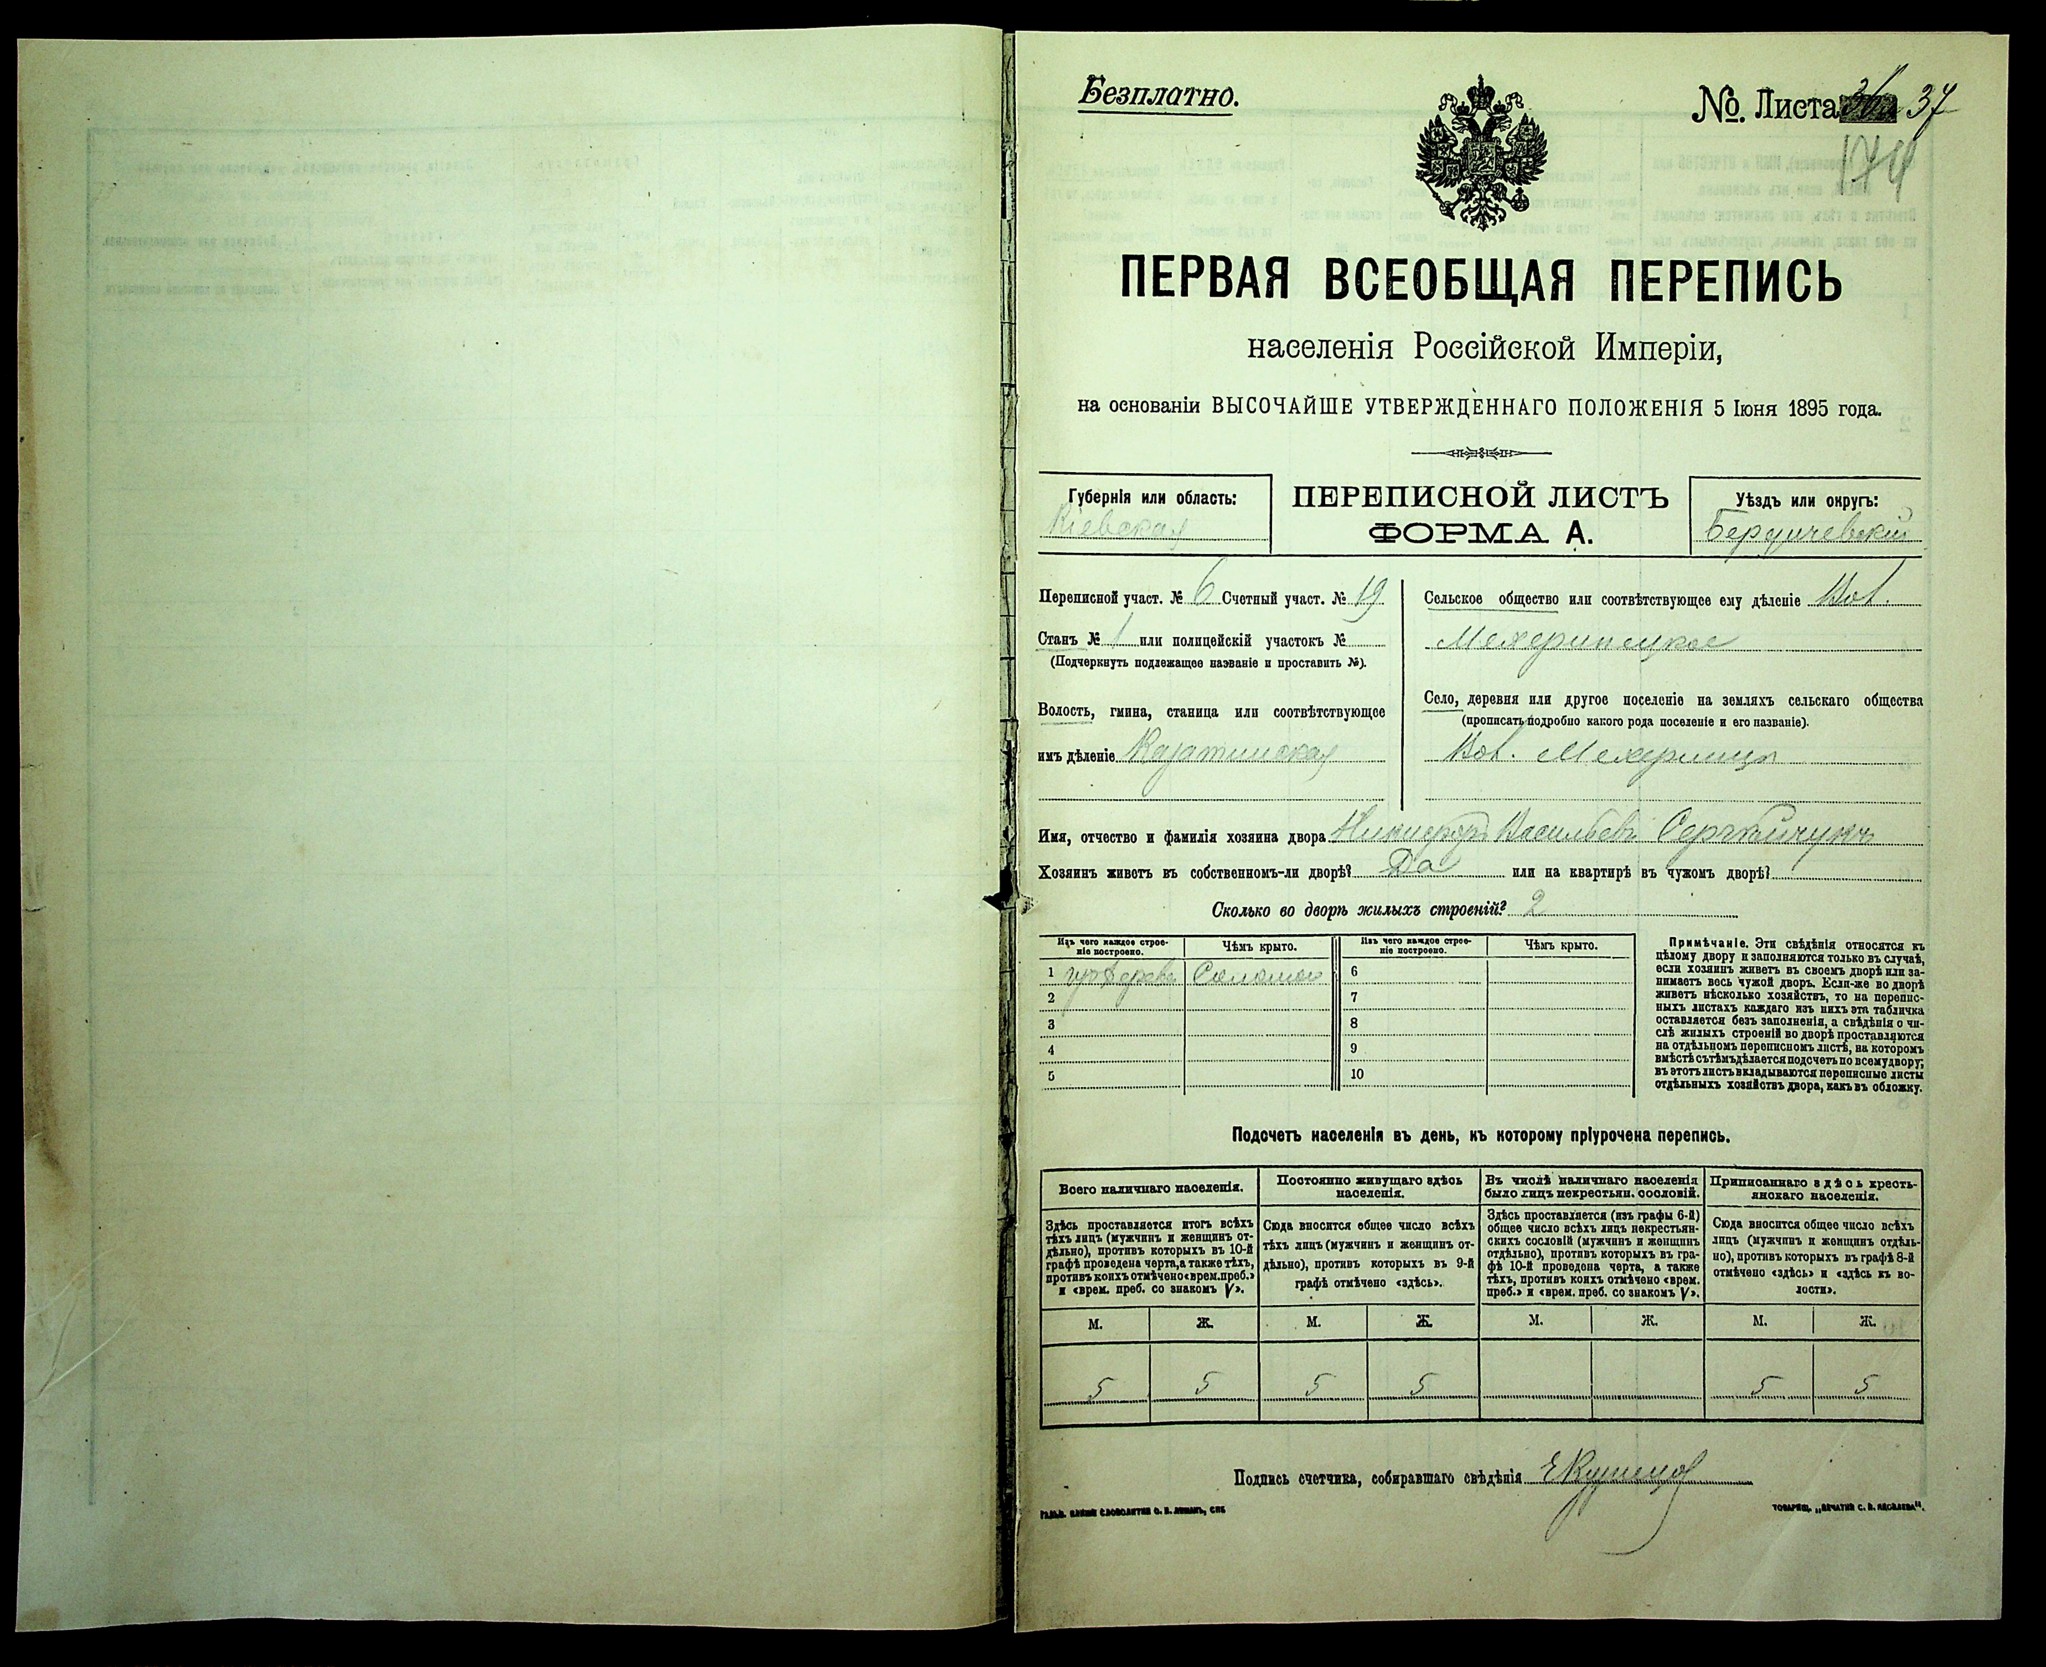 Безплатно.
№. Листа 37
174
ПЕРВАЯ ВСЕОБЩАЯ ПЕРЕПИСЬ
населенія Россійской Имперіи,
на основаніи ВЫСОЧАЙШЕ УТВЕРЖДЕННАГО ПОЛОЖЕНІЯ 5 Іюня 1895 года.
Губернія или область:
Кіевская
ПЕРЕПИСНОЙ ЛИСТЪ
ФОРМА А.
Уѣздъ или округъ:
Бердичевскій
Переписной участ. № 6 Счетный участ. № 19
Станъ № 1 или полицейскій участокъ №
(Подчеркнуть подлежащее названіе и проставить №).
Волость, гмина, станица или соотвѣтствующее
имъ дѣленіе Казатинская
Сельское общество или соотвѣтствующее ему дѣленіе
Махеринецкое
Село, деревня или другое поселеніе на земляхъ сельскаго общества
(прописать подробно какого рода поселеніе и его названіе).
Махеринцы
Имя, отчество и фамилія хозяина двора Никифоръ Васильевъ
Хозяинъ живетъ въ собственномъ-ли дворѣ? Да или на квартирѣ въ чужомъ дворѣ?
Сколько во дворѣ жилыхъ строеній? 2
Изъ чего каждое строе-
ніе построено.
Чѣмъ крыто.
Изъ чего каждое строе-
ніе построено.
Чѣмъ крыто.
1 Соломою 6
2 7
3 8
4 9
5 10
Примѣчаніе. Эти свѣдѣнія относятся къ
цѣлому двору и заполняются только въ случаѣ,
если хозяинъ живетъ въ своемъ дворѣ или за-
нимаетъ весь чужой дворъ. Если-же во дворѣ
живетъ нѣсколько хозяйствъ, то на перепис-
ныхъ листахъ каждаго изъ нихъ эта табличка
оставляется безъ заполненія, а свѣдѣнія о чи-
слѣ жилыхъ строеній во дворѣ проставляются
на отдѣльномъ переписномъ листѣ, на которомъ
вмѣстѣ съ тѣмъ дѣлается подсчетъ по всему двору;
въ этотъ листъ вкладываются переписные листы
отдѣльныхъ хозяйствъ двора, какъ въ обложку.
Подсчетъ населенія въ день, къ которому пріурочена перепись.
Всего наличнаго населенія.
Здѣсь проставляется итогъ всѣхъ
тѣхъ лицъ (мужчинъ и женщинъ от-
дѣльно), противъ которыхъ въ 10-й
графѣ проведена черта, а также тѣхъ,
противъ коихъ отмѣчено «врем. преб.»
и «врем. преб. со знакомъ V».
Постоянно живущаго здѣсь
населенія.
Сюда вносится общее число всѣхъ
тѣхъ лицъ (мужчинъ и женщинъ от-
дѣльно), противъ которыхъ въ 9-й
графѣ отмѣчено «здѣсь».
Въ числѣ наличнаго населенія
было лицъ некрестьян. сословій.
Здѣсь проставляется (изъ графы 6-й)
общее число всѣхъ лицъ некрестьян-
скихъ сословій (мужчинъ и женщинъ
отдѣльно), противъ которыхъ въ гра-
фѣ 10-й проведена черта, а также
тѣхъ, противъ коихъ отмѣчено «врем.
преб.» и «врем. преб. со знакомъ V».
Приписаннаго здѣсь кресть-
янскаго населенія.
Сюда вносится общее число всѣхъ
лицъ (мужчинъ и женщинъ отдѣль-
но), противъ которыхъ въ графѣ 8-й
отмѣчено «здѣсь» и «здѣсь къ во-
лости».
М. Ж. М. Ж. М. Ж. М. Ж.
5 5 5 5 5 5
Подпись счетчика, собиравшаго свѣдѣнія
ТОВАРИЩ. „ПЕЧАТНЯ С. П. ЯКОВЛЕВА".